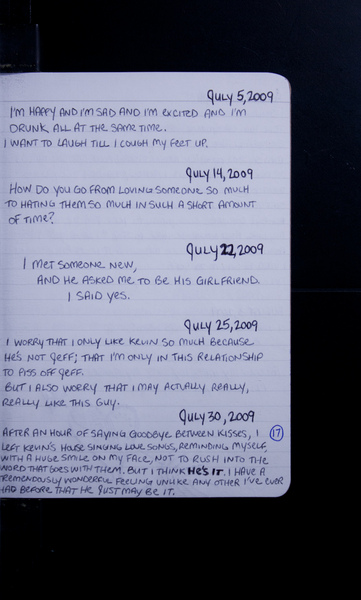 July 5, 2009
I'm happy and I'm sad and I'm excited and I'm
drunk all at the same time.
I want to laugh till I cough my feet up.
July 14, 2009
How do you go from loving someone so much
to hating them so much in such a short amount
of time?
July 22, 2009
I met someone new,
and he asked me to be his girlfriend.
I said yes.
July 25, 2009
I worry that I only like Kevin so much because
he's not Jeff; that I'm only in this relationship
to piss off Jeff.
But I also worry that I may actually really,
really like this guy.
July 30, 2009
After an hour of saying goodbye between kisses, I
17
left Kevin's house singing love songs, reminding myself,
with a huge smile on my face, not to rush into the
word that goes with them. But I think he's it. I have a
tremendously wonderful feeling unlike any other I've ever
had before that he just may be it.